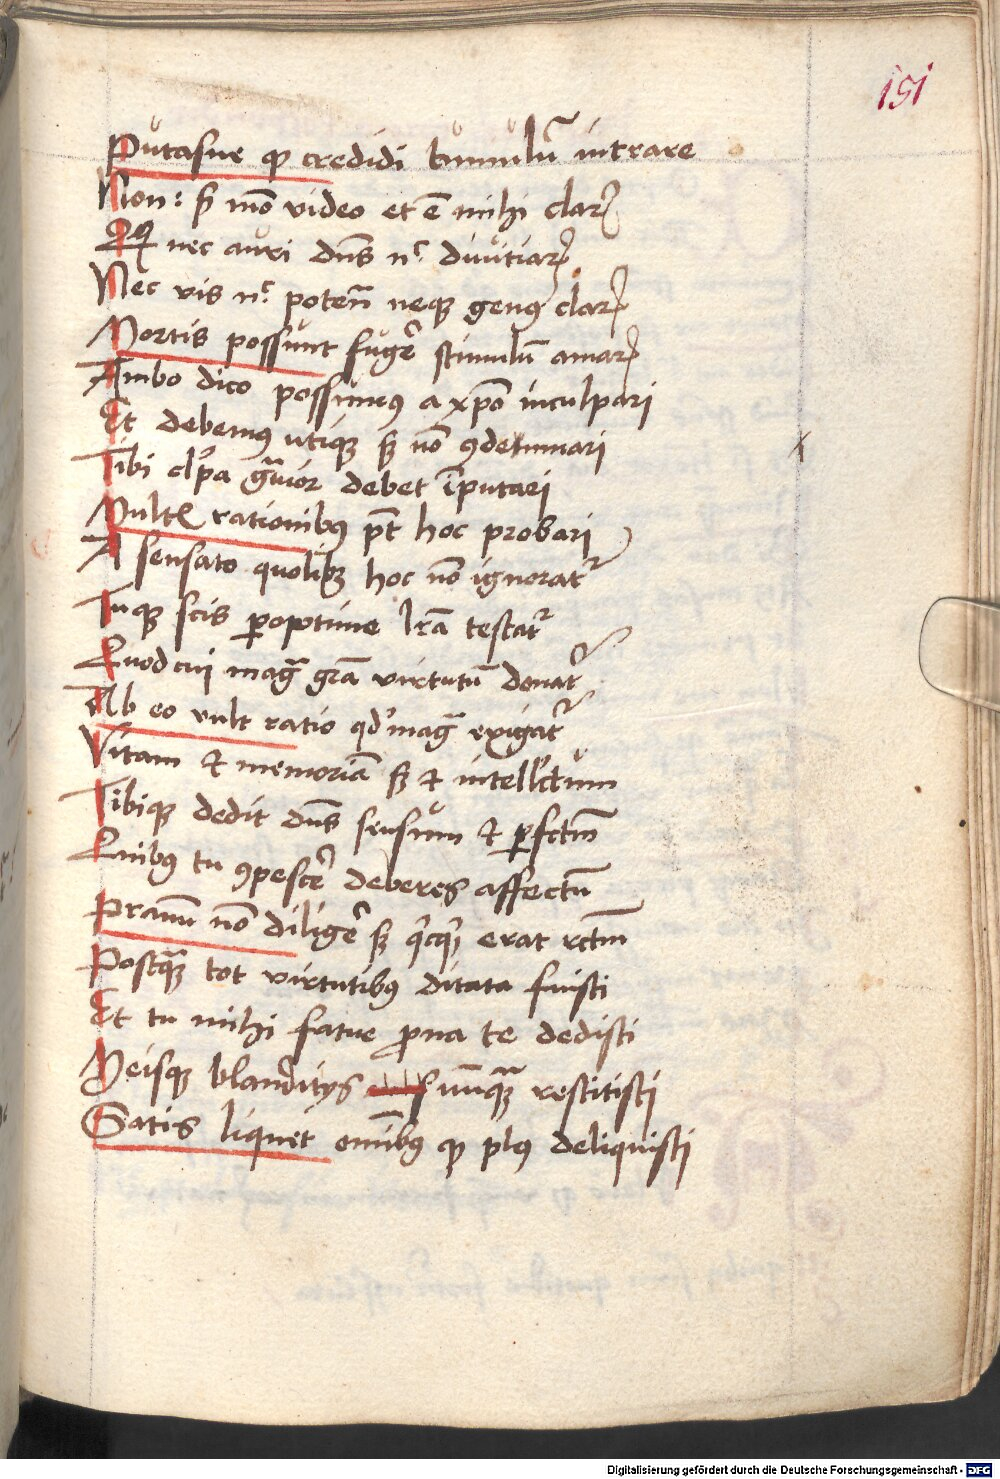 151
Putasne qp credidi tumulū intrare
Non: sȝ mō video et ē mihi clar
Qȝ nec auri dn̄s nᶜ divitiar
Nec vis nᶜ poten̄ neqȝ genꝰ clar
Mortis possunt fuge͛ stimulū amar
Ambo dico possumꝰ a xp̄o inculpari
Et debemꝰ utiqȝ sȝ nō ꝯdemnari
Tibi cl'pa gͣvior debet īputari
Mult rationibꝰ pt̄ hoc probari
A sensato quolibȝ hoc nō ignorat᷑
Tuqȝ scis ꝑoptime lr̄a testat᷑
Quod cui magͣ grā virtutū donat᷑
Ab eo vult ratio qd' magͣ exigat᷑
Vitam et memoriā sȝ et intell'ctum
Tibiqȝ dedit dn̄s sensum et ꝑfctm̄
Quibꝰ tu ꝯpesce͛ deberes affectū
Pravū nō dilige͛ sȝ erat rctm̄
Postqͣȝ tot virtutibꝰ ditata fuisti
Et tu mihi fatue ꝓna te dedisti
Meisqȝ blanditys nūqͣȝ restitisti
Satis liquet om̄ibꝰ qp plꝰ deliquisti
Digitalisierung gefördert durch die Deutsche Forschungsgemeinschaft - DFG